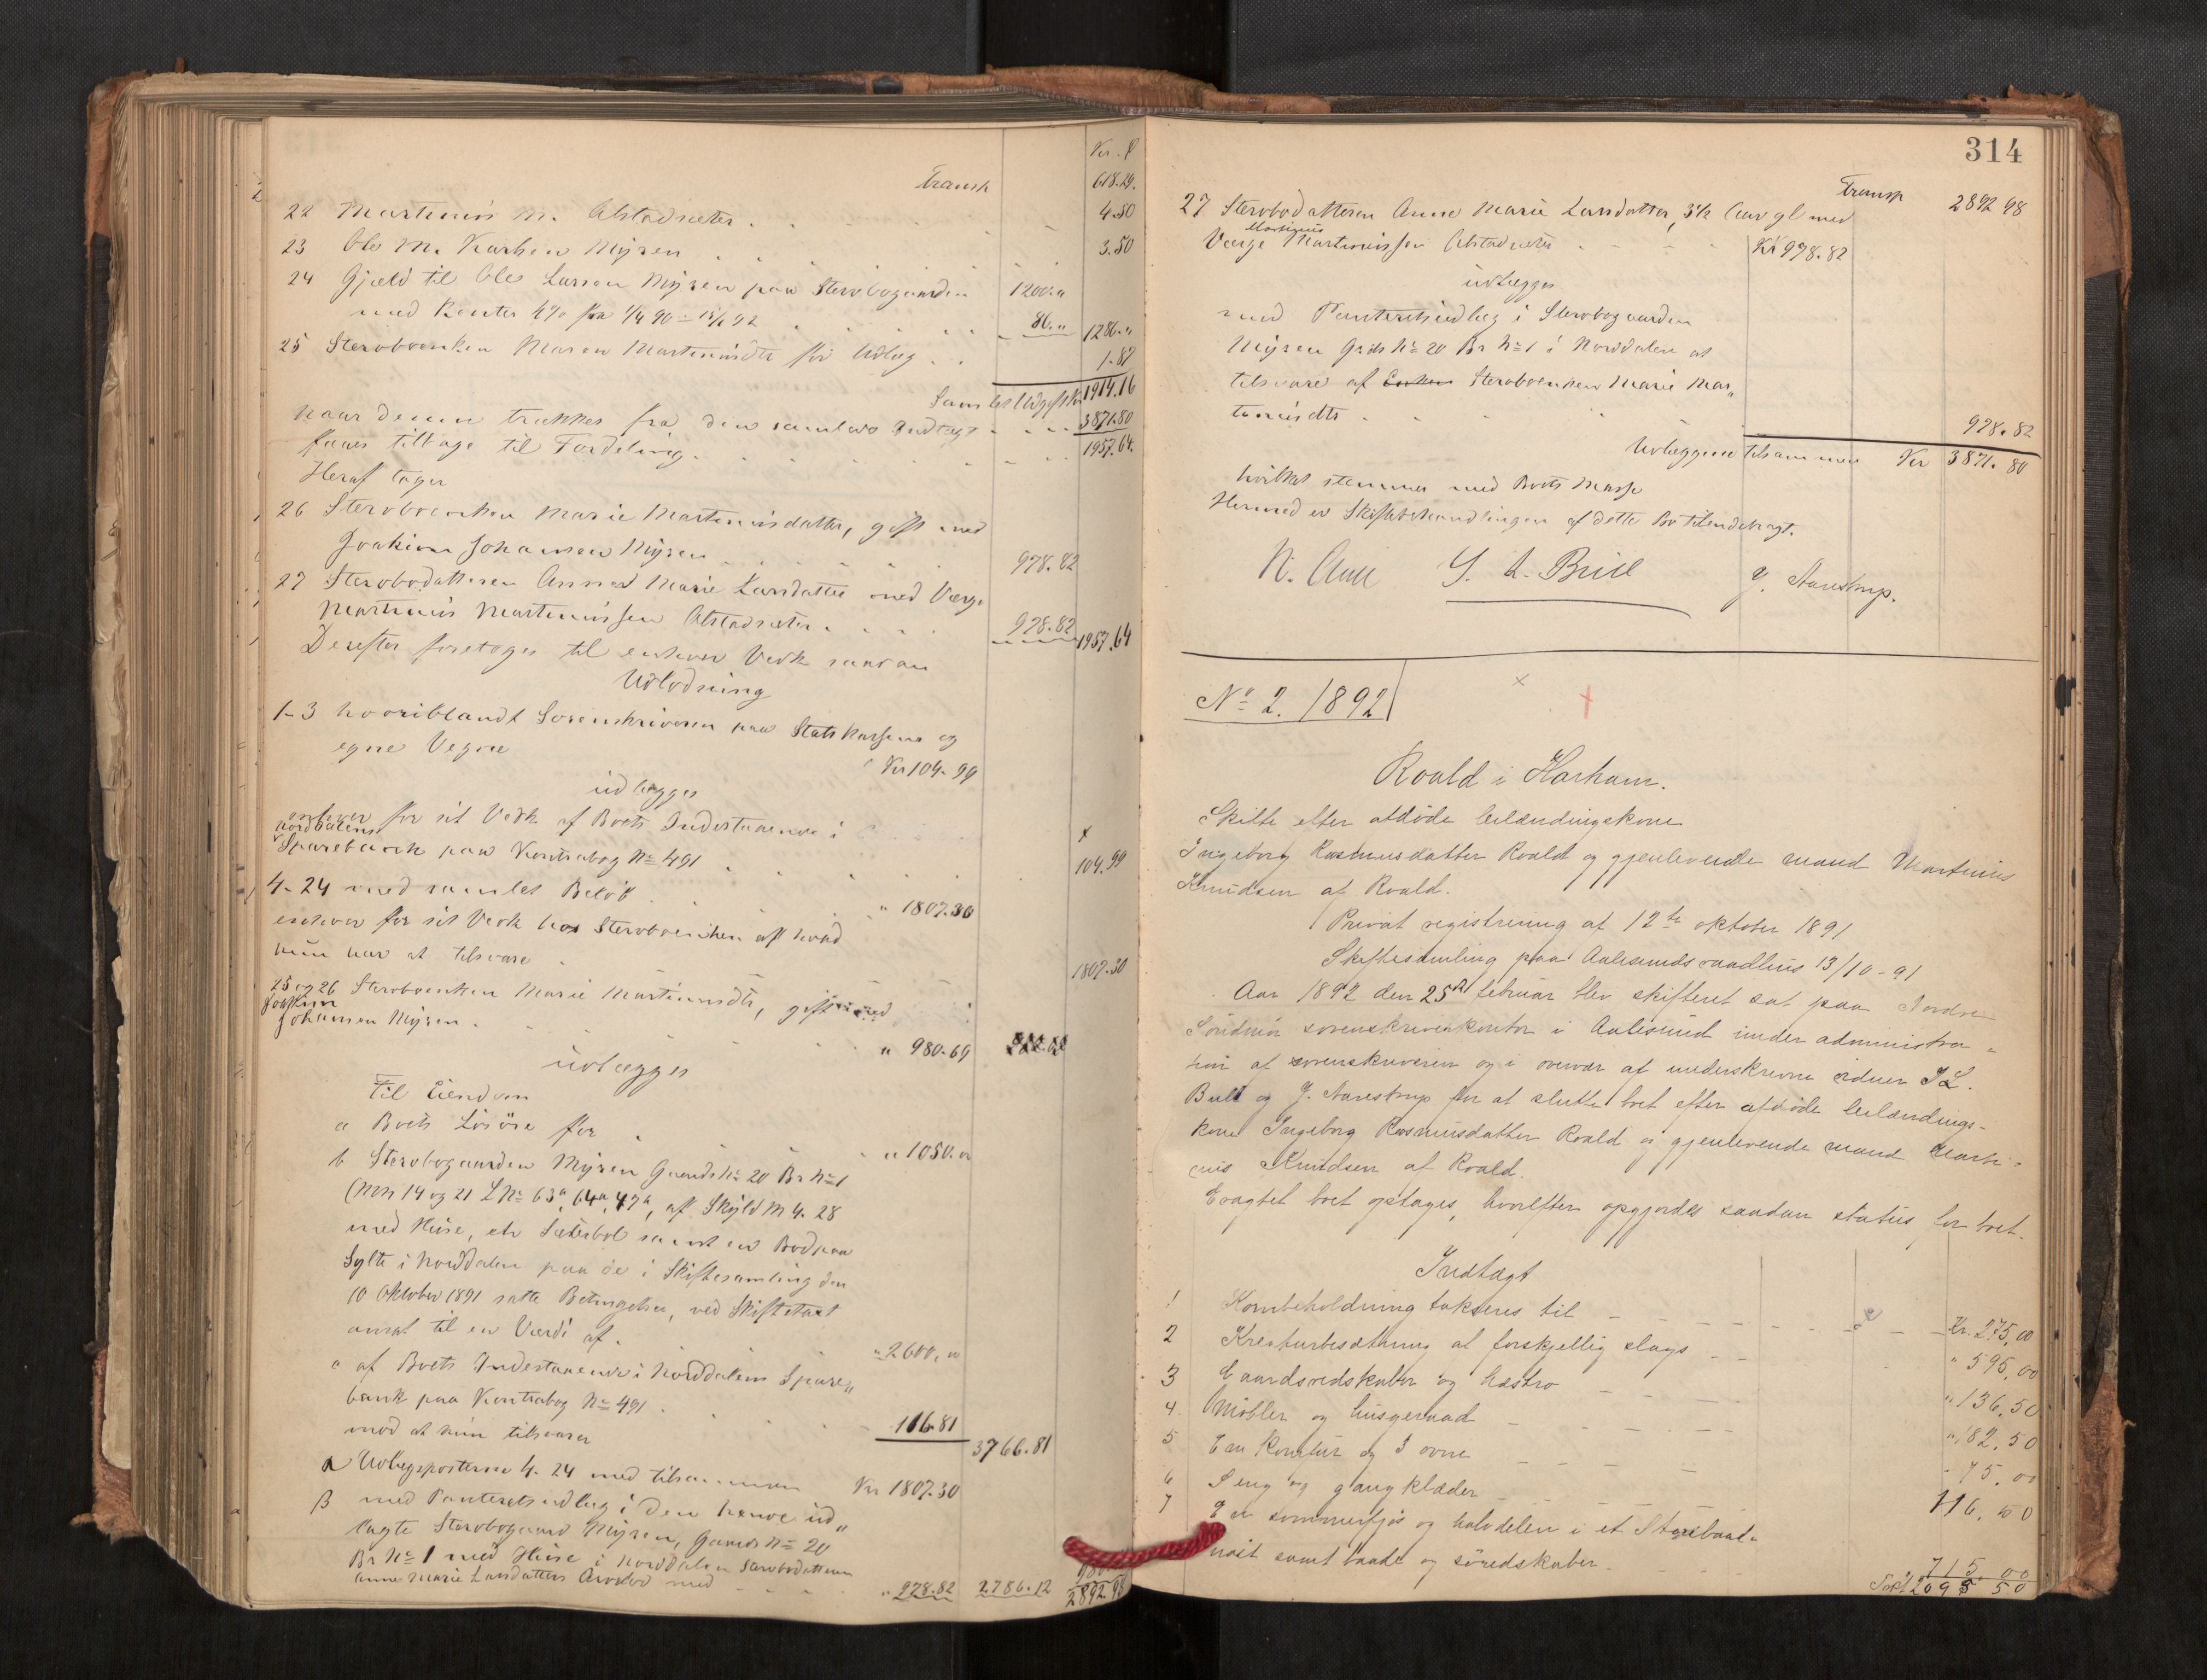 Kr. Ø
Transp 618.29.
22 Martinus M. Alstadsæter . . 4.50
23 Ole M. Myren . . 3.50
24 Gjæld til Ole Larsen Myren paa Stervbogaarden 1200."
med Renter 4% fra 86." 1286."
25 Stervboenken Maren Martinusdtr for Udlæg . . 1.87
Samlet Udgift Kr 1914.16
naar denne trækkes fra den samlede Indtægt . . . . 3871.80
haves tilbage til Fordeling. 1957.64.
Heraf tager
26 Stervboenken Marie Martinusdatter, gift med
Joakim Johansen Myren . . 978.82
27 Stervbodatteren Anne Marie Larsdatter med Værge
Martinus Martinussen Alstadsæter . . . 978.82 1957.64
Derefter foretoges til enhver Vedk saadan
Udlodning
1-3 hvoriblandt Sorenskriveren paa Statskassens og
egne Vegne Kr 104.99
udlægges
enhver for sit Vedk af Boets Indestaaende i
Norddalens
Sparebank paa Kontrabog No 491 . . 104.99
4-24 med samlet Beløb . . " 1807.30
enhver for sit Vedk hos Stervboenken af hvad
hun har at tilsvare . 1807.30
25 og 26 Stervboenken Marie Martinusdtr, gift med
Joakim
Johansen Myren . . " 980.69
udlægges
Til Eiendom
a Boets Løsøre for . " 1050."
b Stervbogaarden Myren Gaards No 20 Br No 1
(Mtr 14 og 21 L No 63a, 64a, 47a, af Skyld M 4.28
med Huse, et Sæterbol samt en Bod paa
Sylte i Norddalen paa de i Skiftesamling den
10 Oktober 1891 satte Betingelser, ved Skiftetaxt
ansat til en Værdi af . " 2600,"
c af Boets Indestaaende i Norddalens Spare„
bank paa Kontrabog No 491 . 116.81
3766.81
mod at hun tilsvarer
a Udlægsposterne 4-24 med tilsammen Kr 1807.30
β med Panteretsudlæg i den hende ud„
lagte Stervbogaard Myren, Gaards No 20
Br No 1 med Huse i Norddalen Stervbodatteren
Anne Marie Larsdatters Arvelod med . . " 978.82 2786.12
2892.98
314
Transp 2892 98
27 Stervbodatteren Anne Marie Larsdatter, 3½ Aar gl med
Martinus
Værge Martinussen Alstadsæter . . Kr 978.82
udlægges
med Panteretsudlæg i Stervbogaarden
Myren Grds No 20 Br No 1 i Norddalen at
tilsvare af Enken Stervboenken Marie Mar„
tinusdtr . . 978.82
Udlæggene tilsammen Kr 3871.80
hvilket stemmer med Boets Masse
Hermed er Skiftebehandlingen af dette Bo tilendebragt.
J. Aarestrup.
No 2. 1892
Roald i Harham.
Skifte efter afdøde leilændingskone
Ingeborg Rasmusdatter Roald og gjenlevende mand Martinus
Knudsen af Roald.
Privat registrering af 12te oktober 1891
Skiftesamling paa Aalesunds raadhus 13/10-91
Aar 1892 den 25de februar blev skifteret sat paa Nordre
Søndmør sorenskriverkontor i Aalesund under administra-
tion af sorenskriveren og i overvær af underskrevne vidner
Bull og J. Aarestrup for at slutte boet efter afdøde leilændings-
kone Ingeborg Rasmusdatter Roald og gjenlevende mand Marti-
nus Knudsen af Roald.
boet optages, hvorefter opgjordes saadan status for boet.
Indtægt
1 Kornbeholdning takseres til Kr. 275,00
2 Kreaturbesætning af forskjellig slags " 595,00
3 Gaardsredskaber og hæstro " 136,50
4 Møbler og husgeraad " 182,50
5 En komfur og 3 ovne " 75.00
6 Seng og gangklæder 116,50
7 En sommerfjøs og halvdelen i et Storbaad-
nøst samt baade og søredskaber. 715.00
2095 50